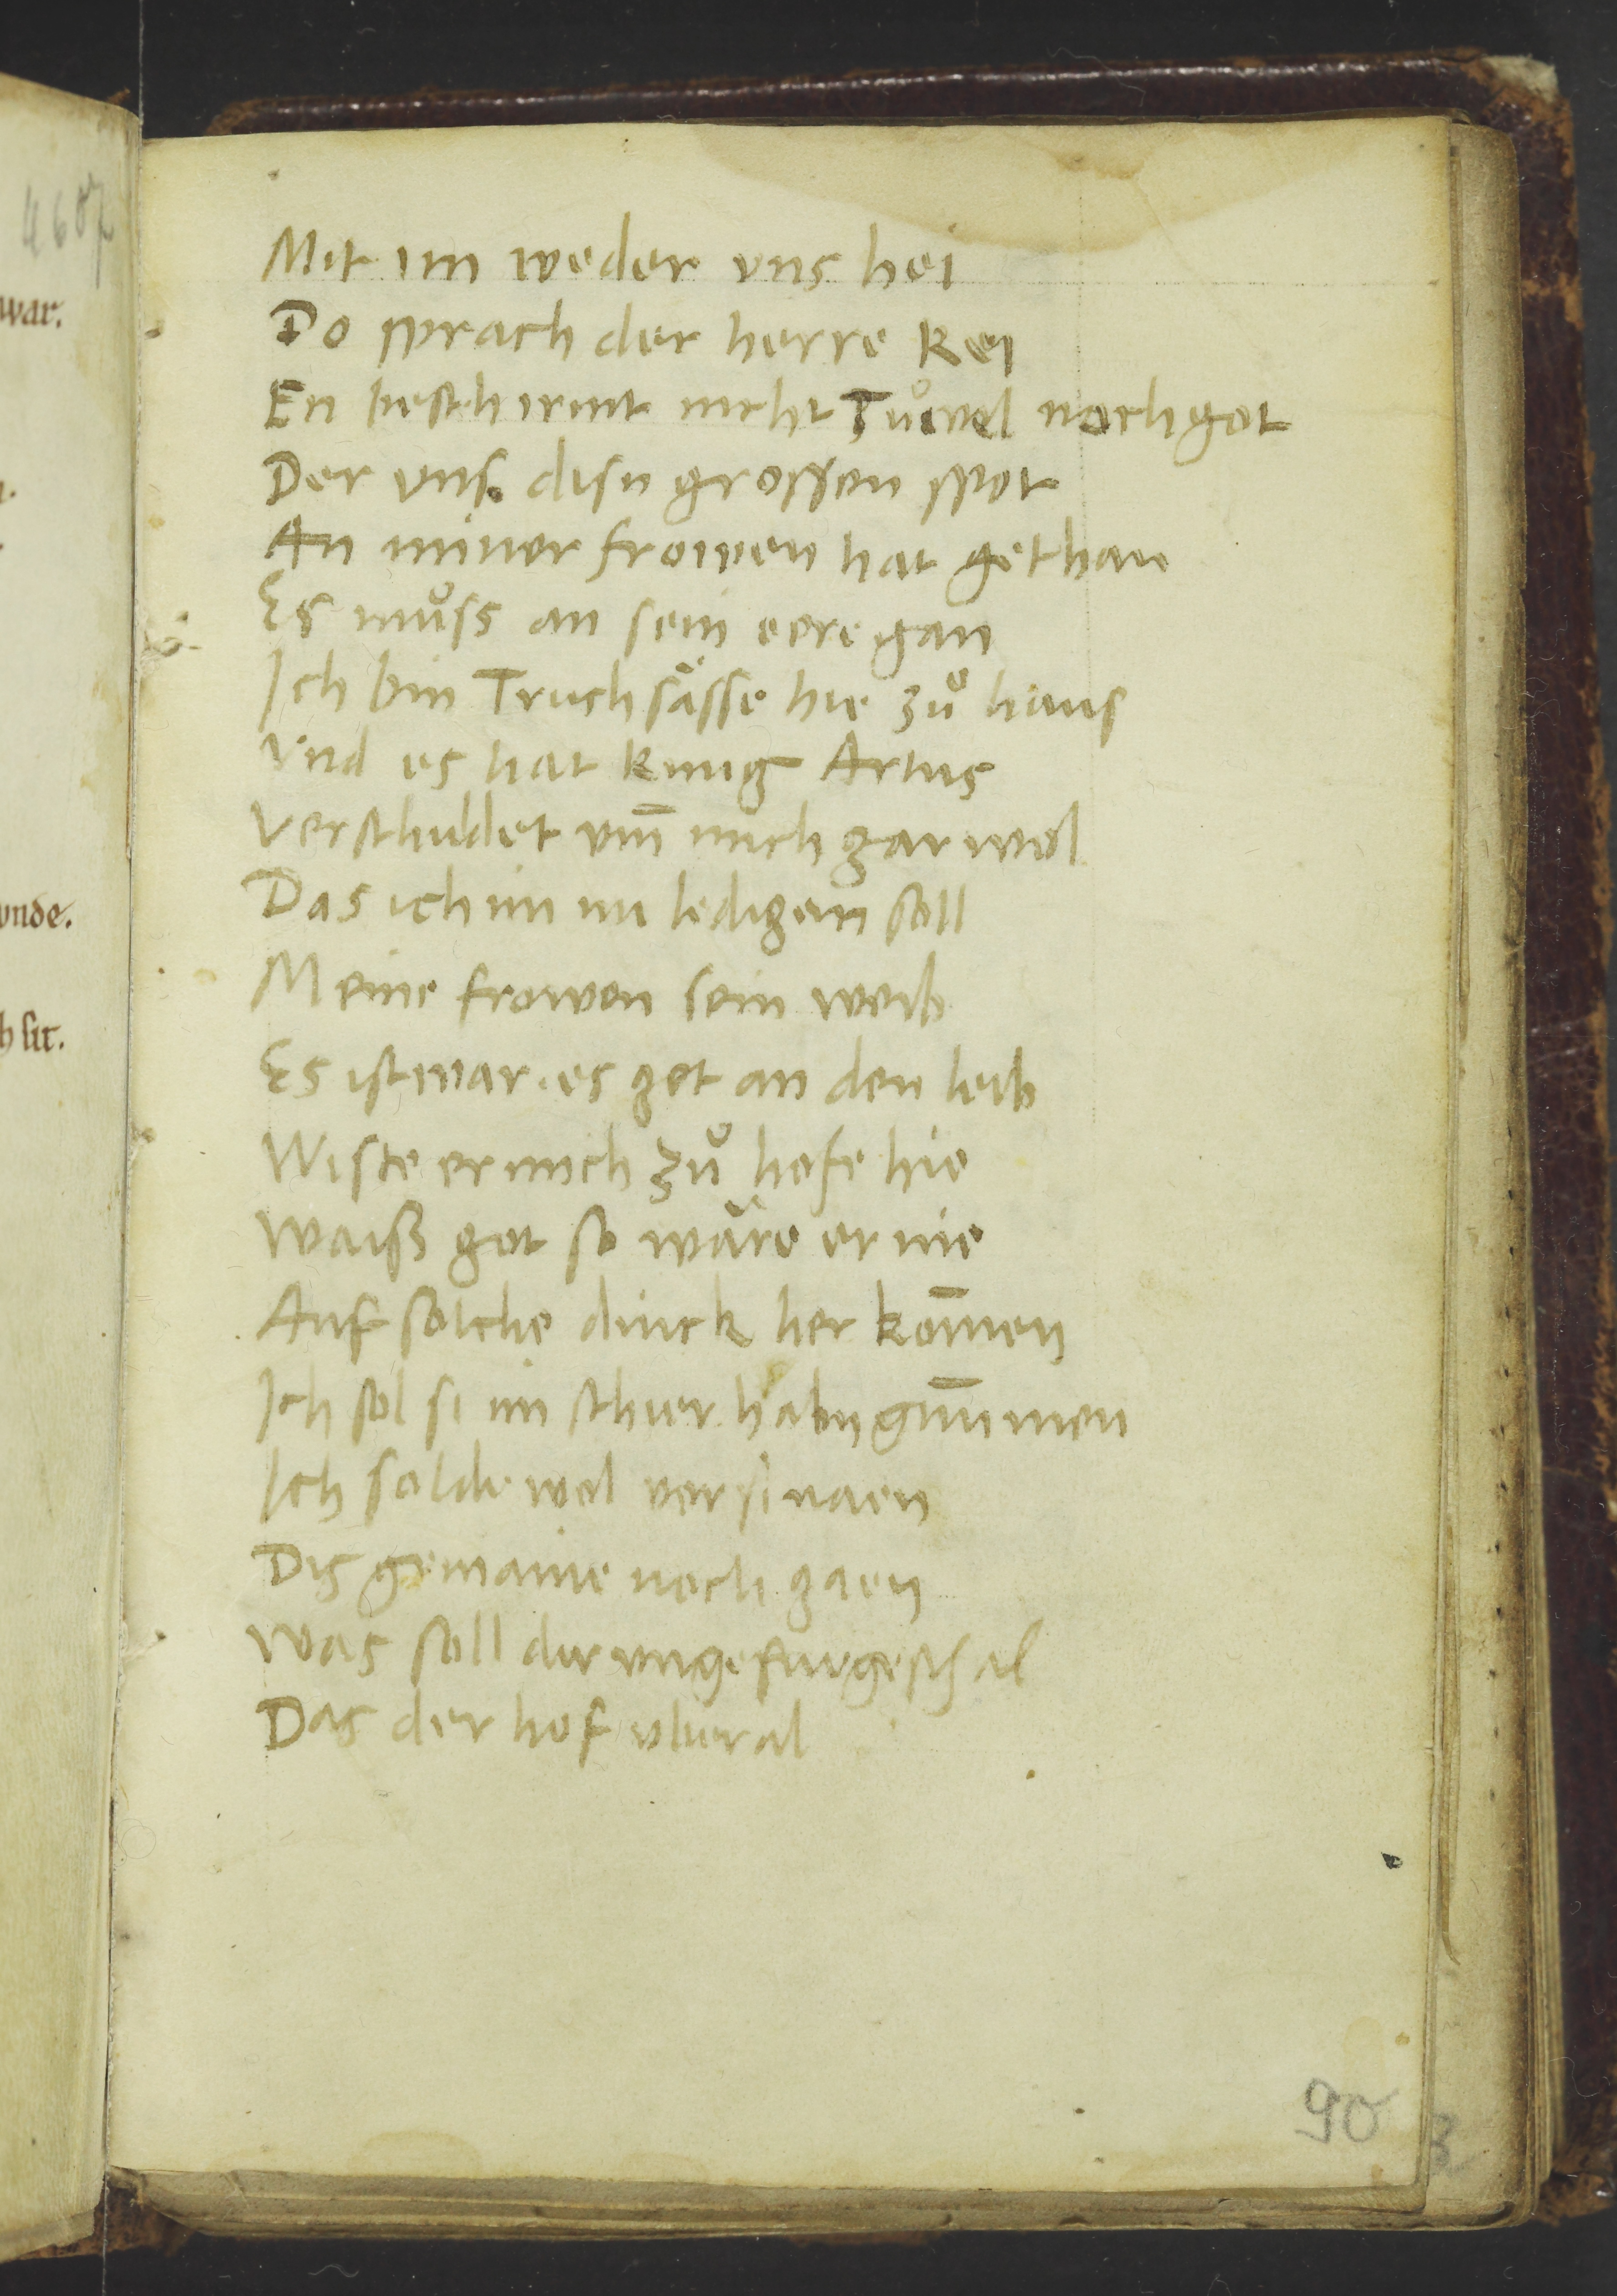 4607
war.
unde.
h sit.
Mit im weder vns hei
Do sprach der herre Kei
En beschirmt nicht Tuͦivel noch got
Der vns disn grossen spot
An miner frowen hat gethan
Es muͦss an sein eere gan
Ich bin Truchsässe hie zuͦ haus
Vnd es hat kunig Artus
Verschuldet vm̄ mich gar wol
Das ich im nu ledigen soll
Meine frowen sein weib
Es ist war. es get an den leib
Wiste er mich zuͦ hofe hie
Waiß got so wäre er nie
Auf solche dinck her kom̄en
Ich sol si im schier habn gnūmen
Ich solde wol versinaen
Dis gemaine nach gaen
Was soll der ungefurge schal
Das der hof vberal
90
3